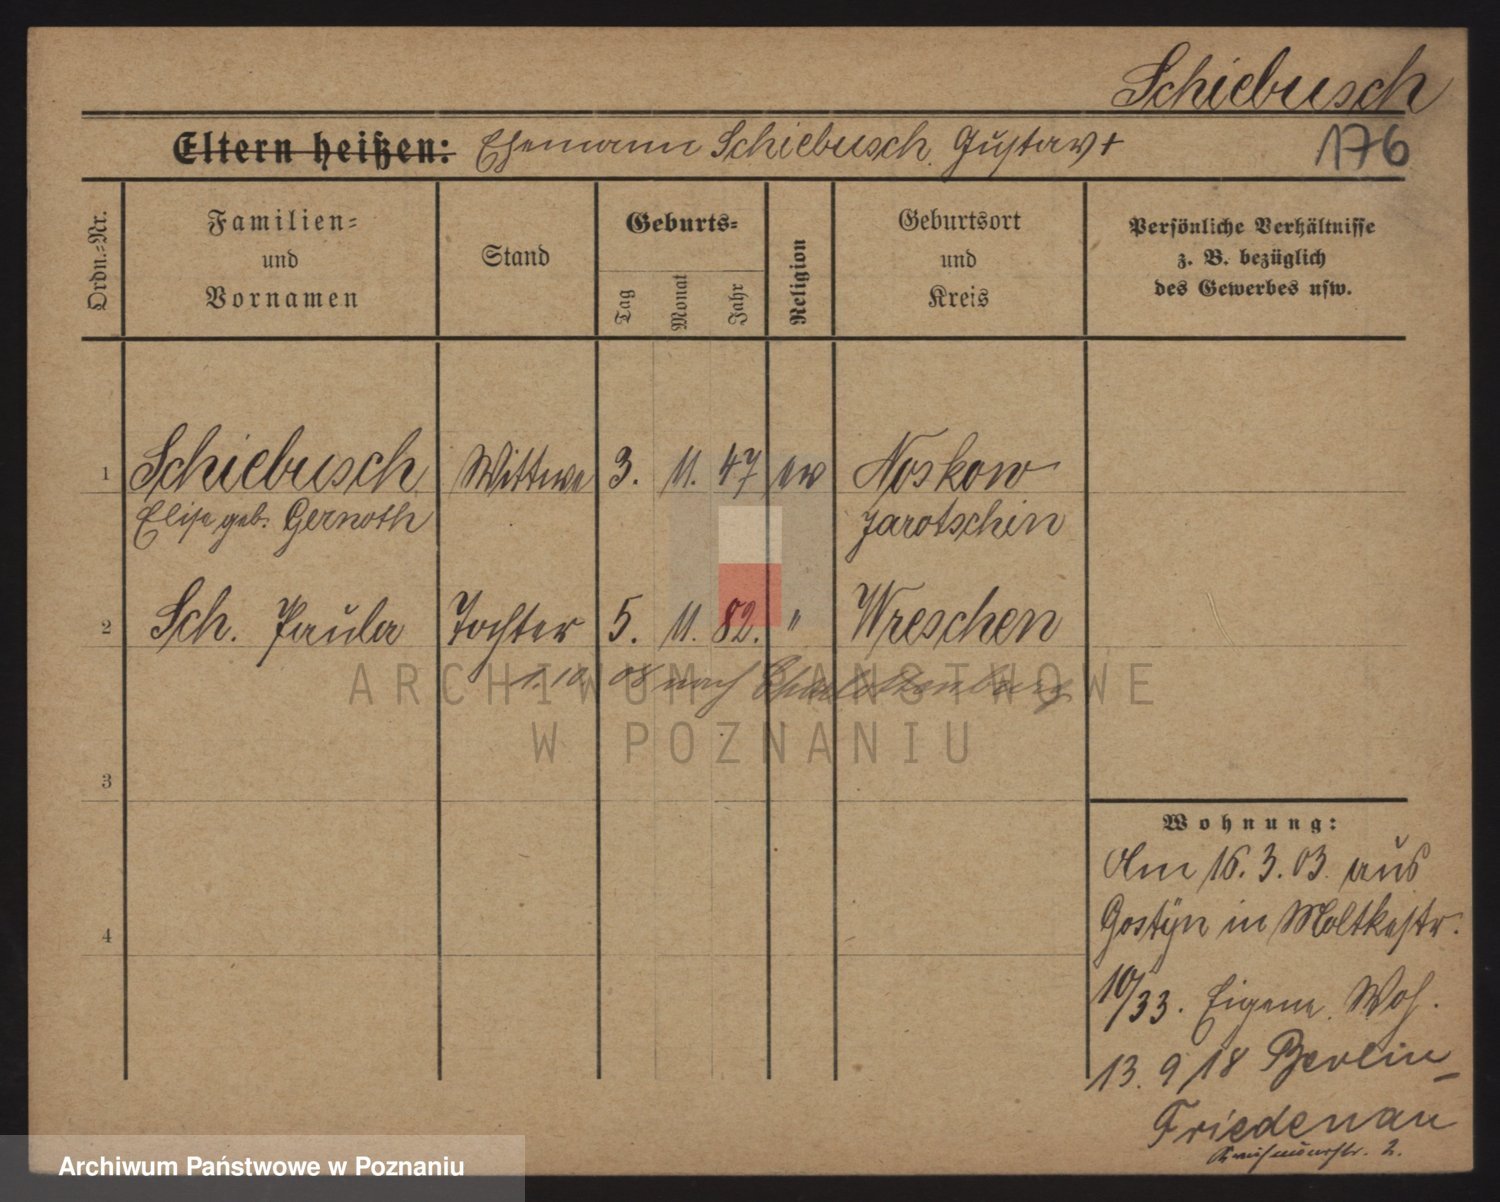 Schiebusch
Eltern heißen: Ehemann Schiebusch, Gustav +
176
Ordn.-Nr.
Familien-
und
Vornamen
Stand
Geburts-
Tag
Monat
Jahr
Religion
Geburtsort
und
Kreis
Persönliche Verhältnisse
z. B. bezüglich
des Gewerbes usw.
1 Schiebusch, Wittwe 3. 11. 47 ev Noskow
Elise geb. Gernoth Jarotschin
2 Sch. Paula Tochter 5. 11. 82. " Wreschen
1. 10 08 nach Charlottenburg
ARCHIWUM PAŃSTWOWE
W POZNANIU
3
4
Wohnung:
Am 16.3.03. aus
Gostyn in Moltkestr.
10/33. Eigene Woh.
13. 9 18 Berlin-
Friedenau
2.
Archiwum Państwowe w Poznaniu